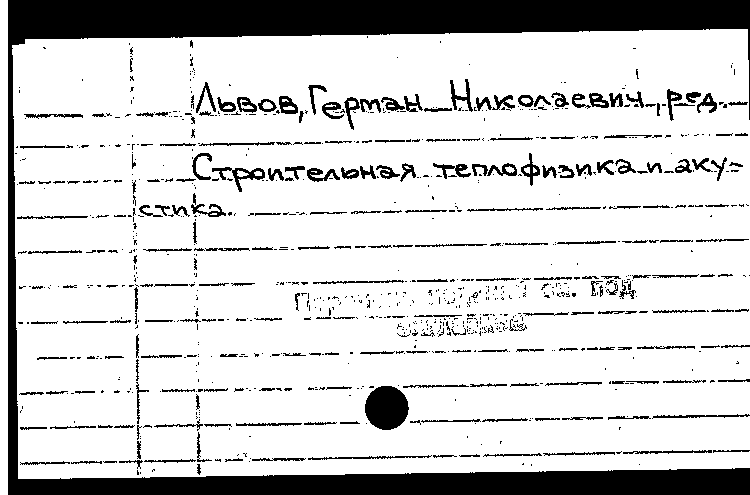 Львов, Герман Николаевич, ред.
Строительная теплофизика и аку-
стика.
Перечень изданий см. под
заглавием